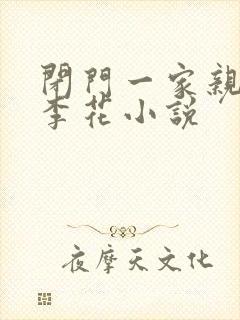 閉門一家親
李花小説
夜摩天文化